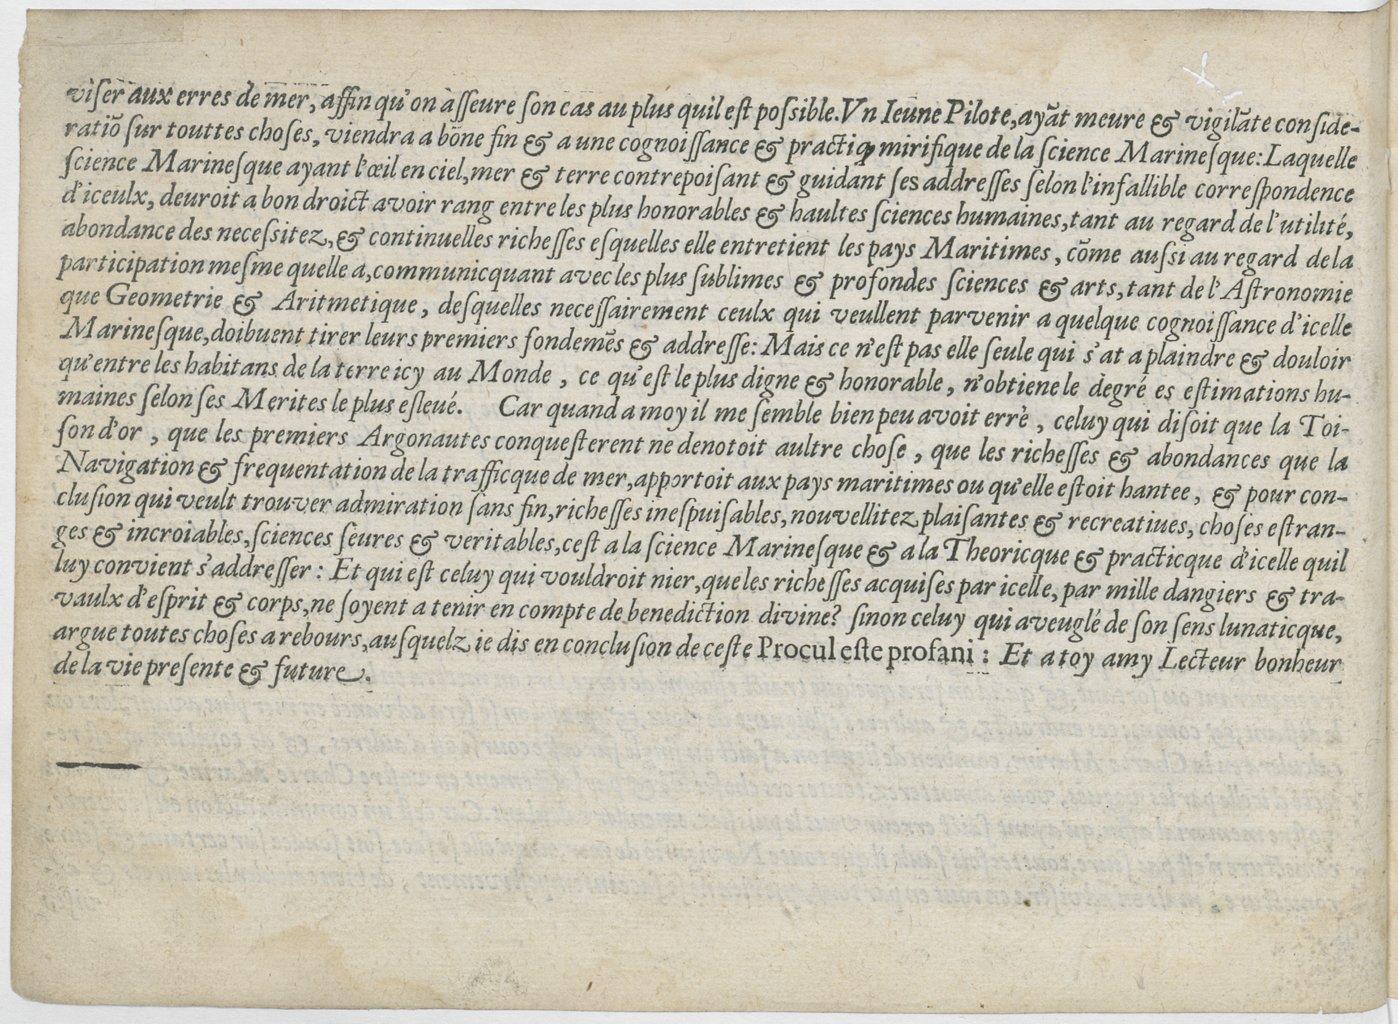 viſer aux erres de mer, affin qu'on aſſeure ſon cas au plus quil eſt poſsible. Vn Ieune Pilote, ayãt meure & vigilãte conside-
ratiõ ſur touttes choſes, viendra a bõne fin & a une cognoiſſance & practiq mirifique de la ſcience Marineſque: Laquelle
ſcience Marineſque ayant l'œil en ciel, mer & terre contrepoiſant & guidant ſes addreſſes ſelon l'infallible correſpondence
d'iceulx, deuroit a bon droict avoir rang entre les plus honorables & haultes ſciences humaines, tant au regard de l'utilité,
abondance des neceſsitez, & continuelles richeſſes eſquelles elle entretient les pays Maritimes, cõme auſsi au regard de la
participation meſme quelle a, communicquant avec les plus ſublimes & profondes ſciences & arts, tant de l'Aſtronomie
que Geometrie & Aritmetique, deſquelles neceſſairement ceulx qui veullent parvenir a quelque cognoiſſance d'icelle
Marineſque, doibuent tirer leurs premiers fondemẽs & addreſſe: Mais ce n'eſt pas elle ſeule qui s'at a plaindre & douloir
qu'entre les habitans de la terre icy au Monde, ce qu'eſt le plus digne & honorable, n'obtiene le degré es eſtimations hu-
maines ſelon ſes Merites le plus eſleué. Car quand a moy il me ſemble bien peu avoit errè, celuy qui diſoit que la Toi-
ſon d'or, que les premiers Argonautes conqueſterent ne denotoit aultre choſe, que les richeſſes & abondances que la
Navigation & frequentation de la trafficque de mer, apportoit aux pays maritimes ou qu'elle eſtoit hantee, & pour con-
cluſion qui veult trouver admiration ſans fin, richeſſes ineſpuiſables, nouvellitez plaiſantes & recreatiues, choſes eſtran-
ges & incroiables, ſciences ſeures & veritables, ceſt a la ſcience Marineſque & a la Theoricque & practicque d'icelle quil
luy convient s'addreſſer: Et qui eſt celuy qui vouldroit nier, que les richeſſes acquiſes par icelle, par mille dangiers & tra-
vaulx d'eſprit & corps, ne ſoyent a tenir en compte de benediction divine? ſinon celuy qui aveuglé de ſon ſens lunaticque,
argue toutes choſes a rebours, auſquelz ie dis en concluſion de ceſte Procul eſte profani: Et a toy amy Lecteur bonheur
de la vie preſente & future.